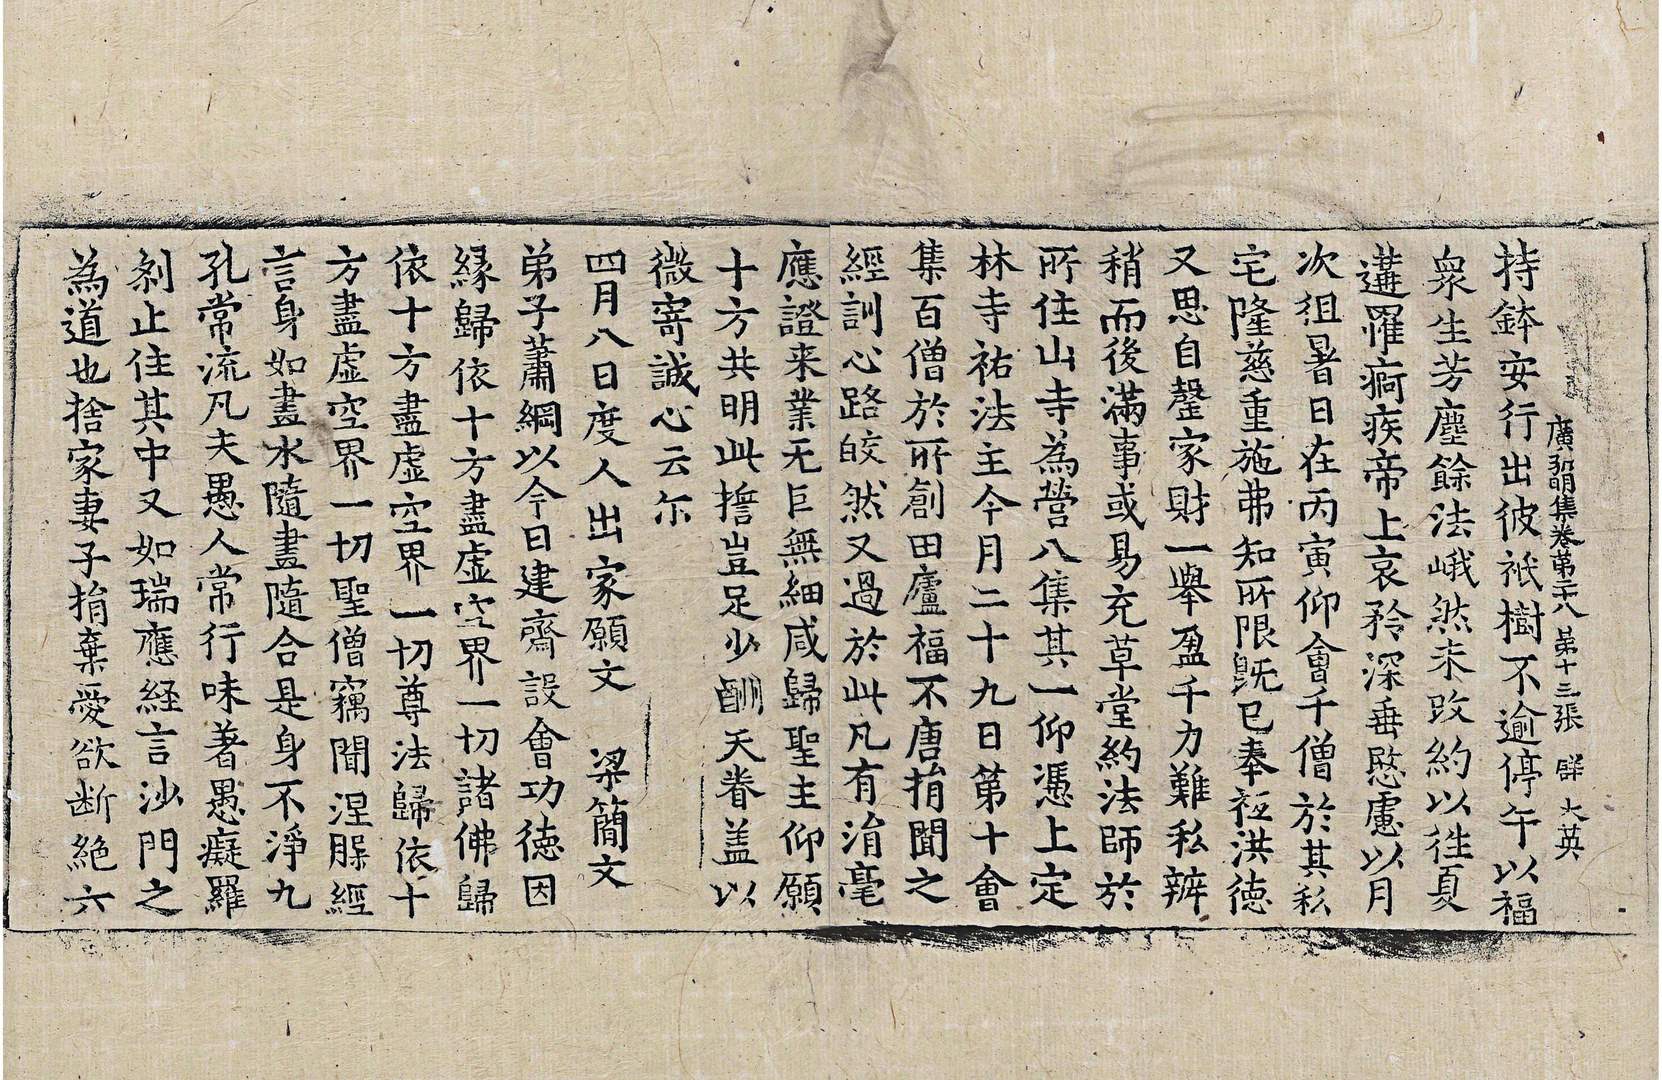 廣弘明集卷第二十八 第十三張 群 大英
持鉢安行出彼祇樹不逾停午以福
衆生芳塵餘法峨然未改約以往夏
遘罹痾疾帝上哀矜深垂愍慮以月
次徂暑日在丙寅仰會千僧於其私
宅隆慈重施弗知所限既已奉袛洪德
又思自罄家財一舉盈千力難私辦
稍而後滿事或易充草堂約法師於
所住山寺為營八集其一仰憑上定
林寺祐法主今月二十九日第十會
集百僧於所創田廬福不唐捐聞之
經訓心路皎然又過於此凡有涓毫
應證来業无巨無細咸歸聖主仰願
十方共明此擔豈足少酬天眷盖以
微寄誠心云尓
四月八日度人出家願文 梁簡文
弟子蕭綱以今日建齋設會功德因
緣歸依十方盡虚空界一切諸佛歸
依十方盡虚空界一切尊法歸依十
方盡虚空界一切聖僧竊聞涅槃經
言身如畫水隨畫隨合是身不淨九
孔常流凡夫愚人常行味著愚癡羅
刹止住其中又如瑞應経言沙門之
為道也捨家妻子捐棄愛欲断絶六